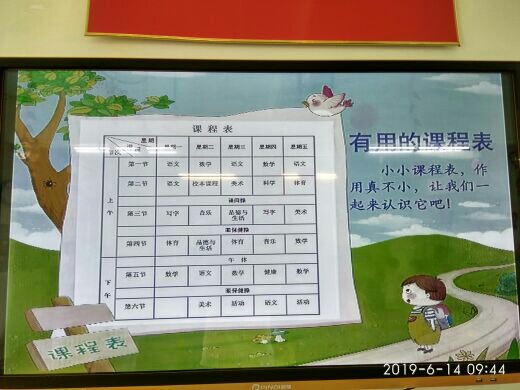 课程表
星期 星期一 星期二 星期三 星期四 星期五
第一节 语文 数学 语文 数学 语文
第二节 语文 校本课程 美术 科学 体育
课间操
第三节 写字 音乐 品德与生活 写字 美术
眼保健操
第四节 体育 品德与生活 体育 音乐 数学
上午
午休
第五节 数学 语文 数学 健康 数学
眼保健操
第六节 美术 活动 语文 活动
下午
有用的课程表
小小课程表，作
用真不小，让我们一
起来认识它吧！
课程表
2019-6-14 09:44